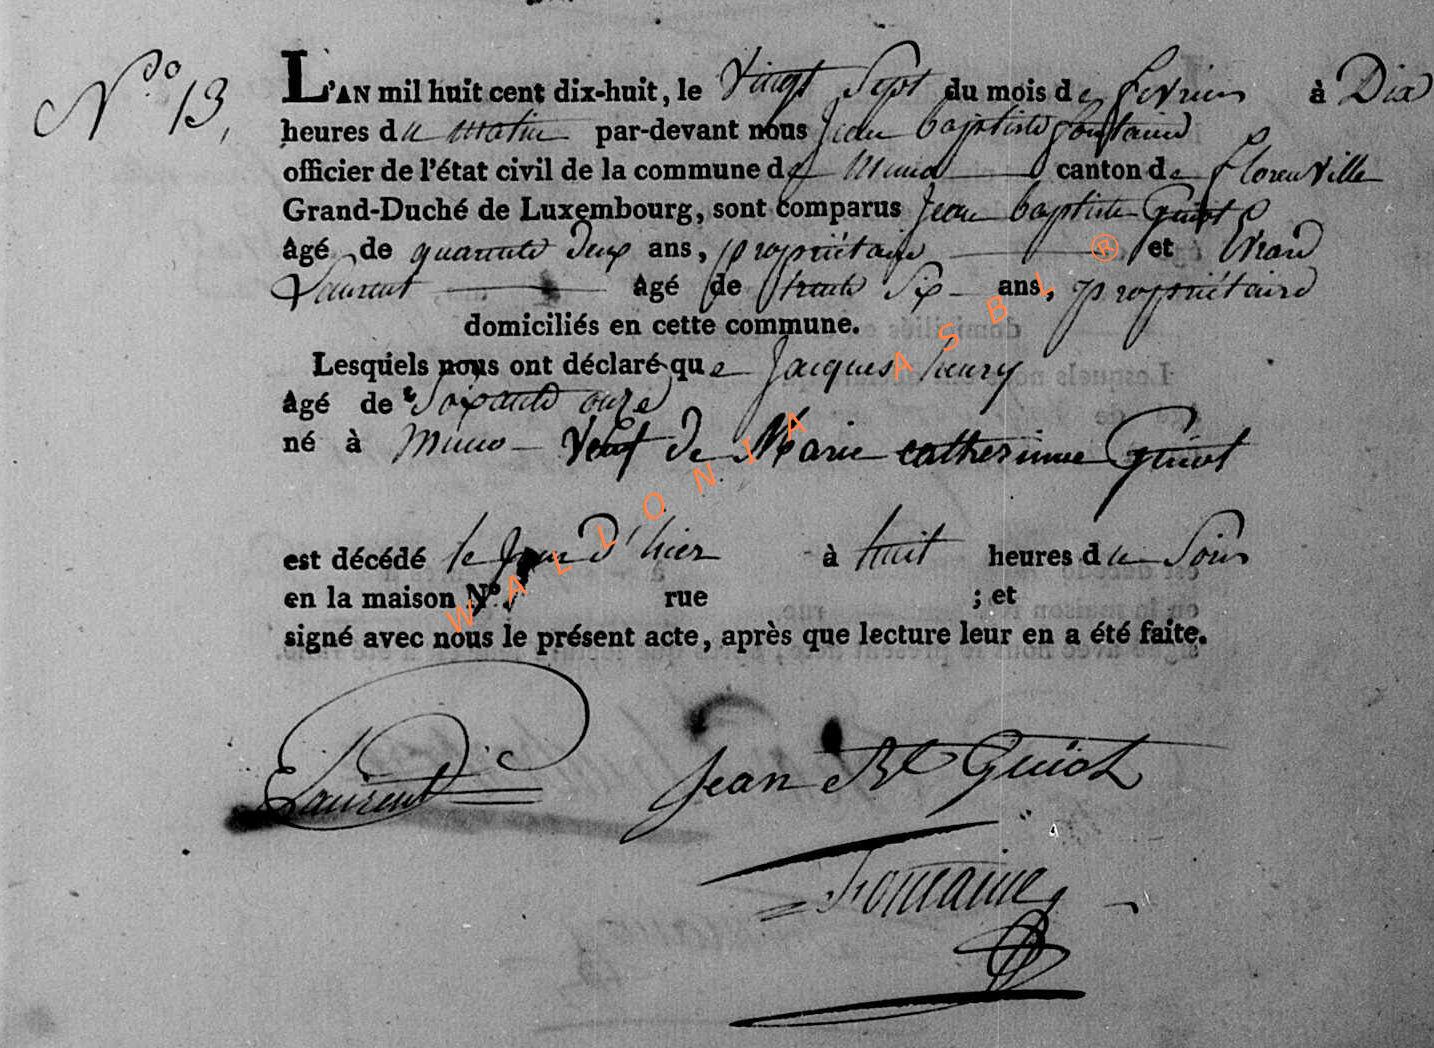 N.do 13,
L'AN mil huit cent dix-huit, le Vingt Sept du mois de fevrier à Dix
heures du matin par-devant nous Jean baptiste fontaine
officier de l'état civil de la commune de Muno canton de florenville
Grand-Duché de Luxembourg, sont comparus Jean baptiste Guiot
âgé de quarante deux ans, propriétaire et Evrard
Laurent âgé de trente Six ans, propriétaire
domiciliés en cette commune.
Lesquels nous ont déclaré que Jacques henry
âgé de Soixante onze
né à Muno Veuf de Marie catherinne Guiot
est décédé le Jour d'hier à huit heures du Soir
en la maison N°. rue ; et
signé avec nous le présent acte, après que lecture leur en a été faite.
E Laurent Jean Bte Guiot
Fontaine
WALLONIA ASBL ®